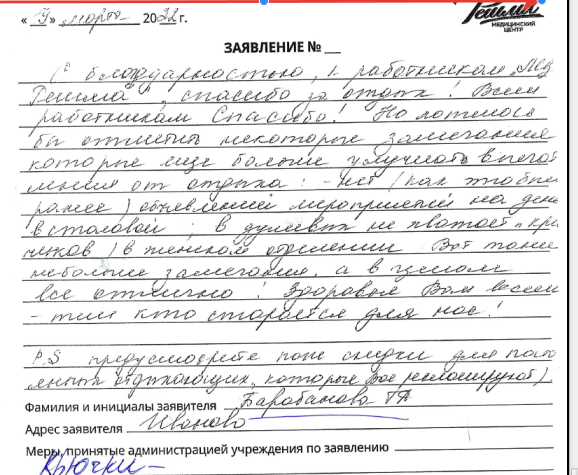 « 9 » марта 2022 г.
Решма
МЕДИЦИНСКИЙ
ЦЕНТР
ЗАЯВЛЕНИЕ № __
(С благодарностью, к работникам „МЦ
Решма", спасибо за отдых! Всем
работникам Спасибо! Но хотелось
бы отметить некоторые замечания
которые еще больше улучшать впечат
ления от отдыха: - нет (как это было
ранее) объявлений мероприятий на день
в столовой; в душевых не хватает крю
чков) в женском отделении. Вот такие
небольшие замечания, а в целом
все отлично! Здоровья Вам всем
- тем кто старается для нас!
P.S предусмотрите скидки для
отдыхающих, которые Вас рекламируют).
Фамилия и инициалы заявителя Барабанова
Адрес заявителя Иваново
Меры, принятые администрацией учреждения по заявлению
Крючки –